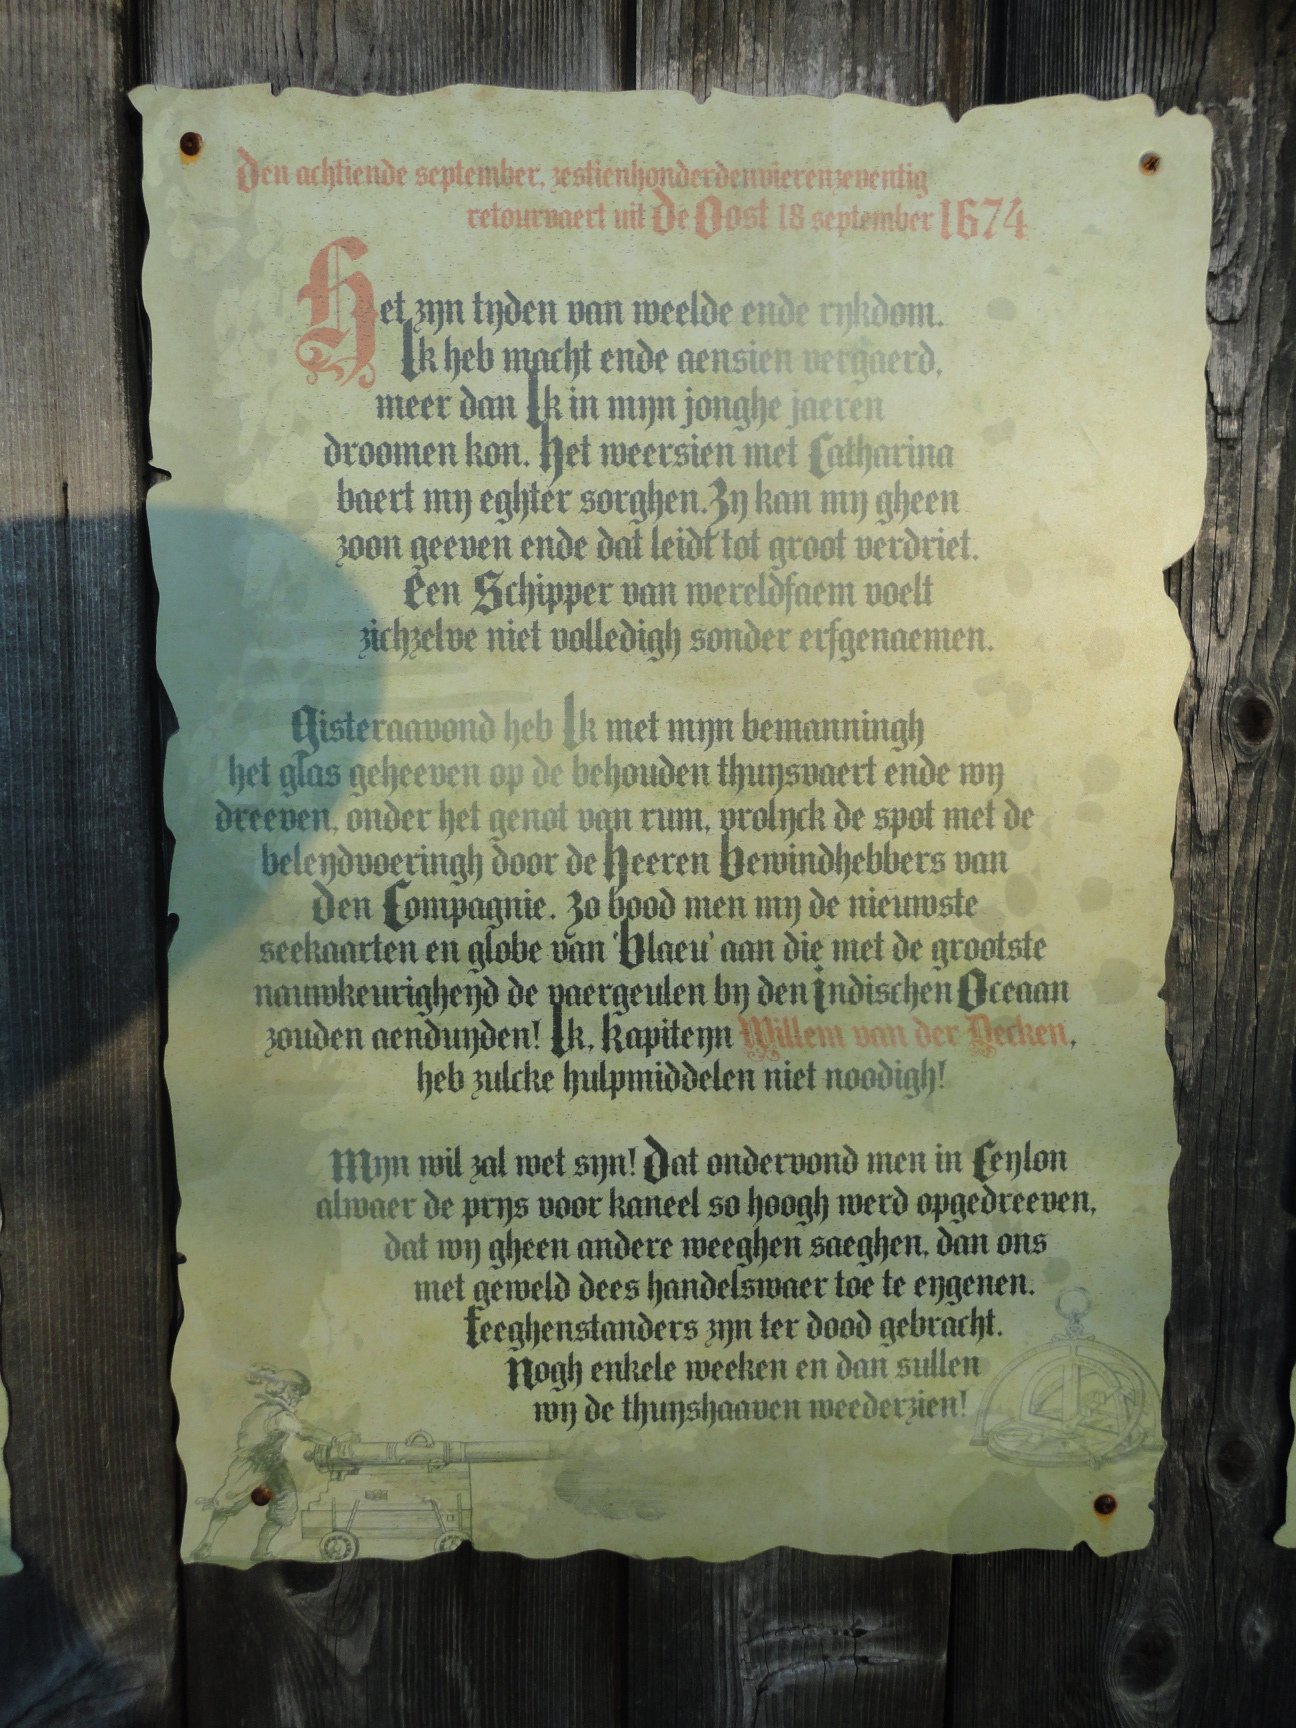 Den achtiende september, zestienhonderdenvierenzeventig
retourvaert uit De Oost 18 september 1674
Het zyn tyden van weelde ende rykdom.
Ik heb macht ende aensien vergaerd,
meer dan Ik in myn jonghe jaeren
droomen kon. Het weersien met Catharina
baert my eghter sorghen. Zy kan my gheen
zoon geeven ende dat leidt tot groot verdriet.
Een Schipper van wereldfaem voelt
zichzelve niet volledigh sonder erfgenaemen.
Gisteraavond heb Ik met myn bemanningh
het glas geheeven op de behouden thuysvaert ende wy
dreeven, onder het genot van rum, vrolyck de spot met de
beleydvoeringh door de Heeren Bewindhebbers van
Den Compagnie. Zo bood men my de nieuwste
seekaarten en globe van 'Blaeu' aan die met de grootste
nauwkeurigheyd de vaergeulen by den Indischen Oceaan
zouden aenduyden! Ik, Kapiteyn Willem van der Decken,
heb zulcke hulpmiddelen niet noodigh!
Myn wil zal wet syn! Dat ondervond men in Ceylon
alwaer de prys voor kaneel so hoogh werd opgedreeven,
dat wy gheen andere weeghen saeghen, dan ons
met geweld dees handelswaer toe te eygenen.
Teeghenstanders zyn ter dood gebracht.
Nogh enkele weeken en dan sullen
wy de thuyshaaven weederzien!